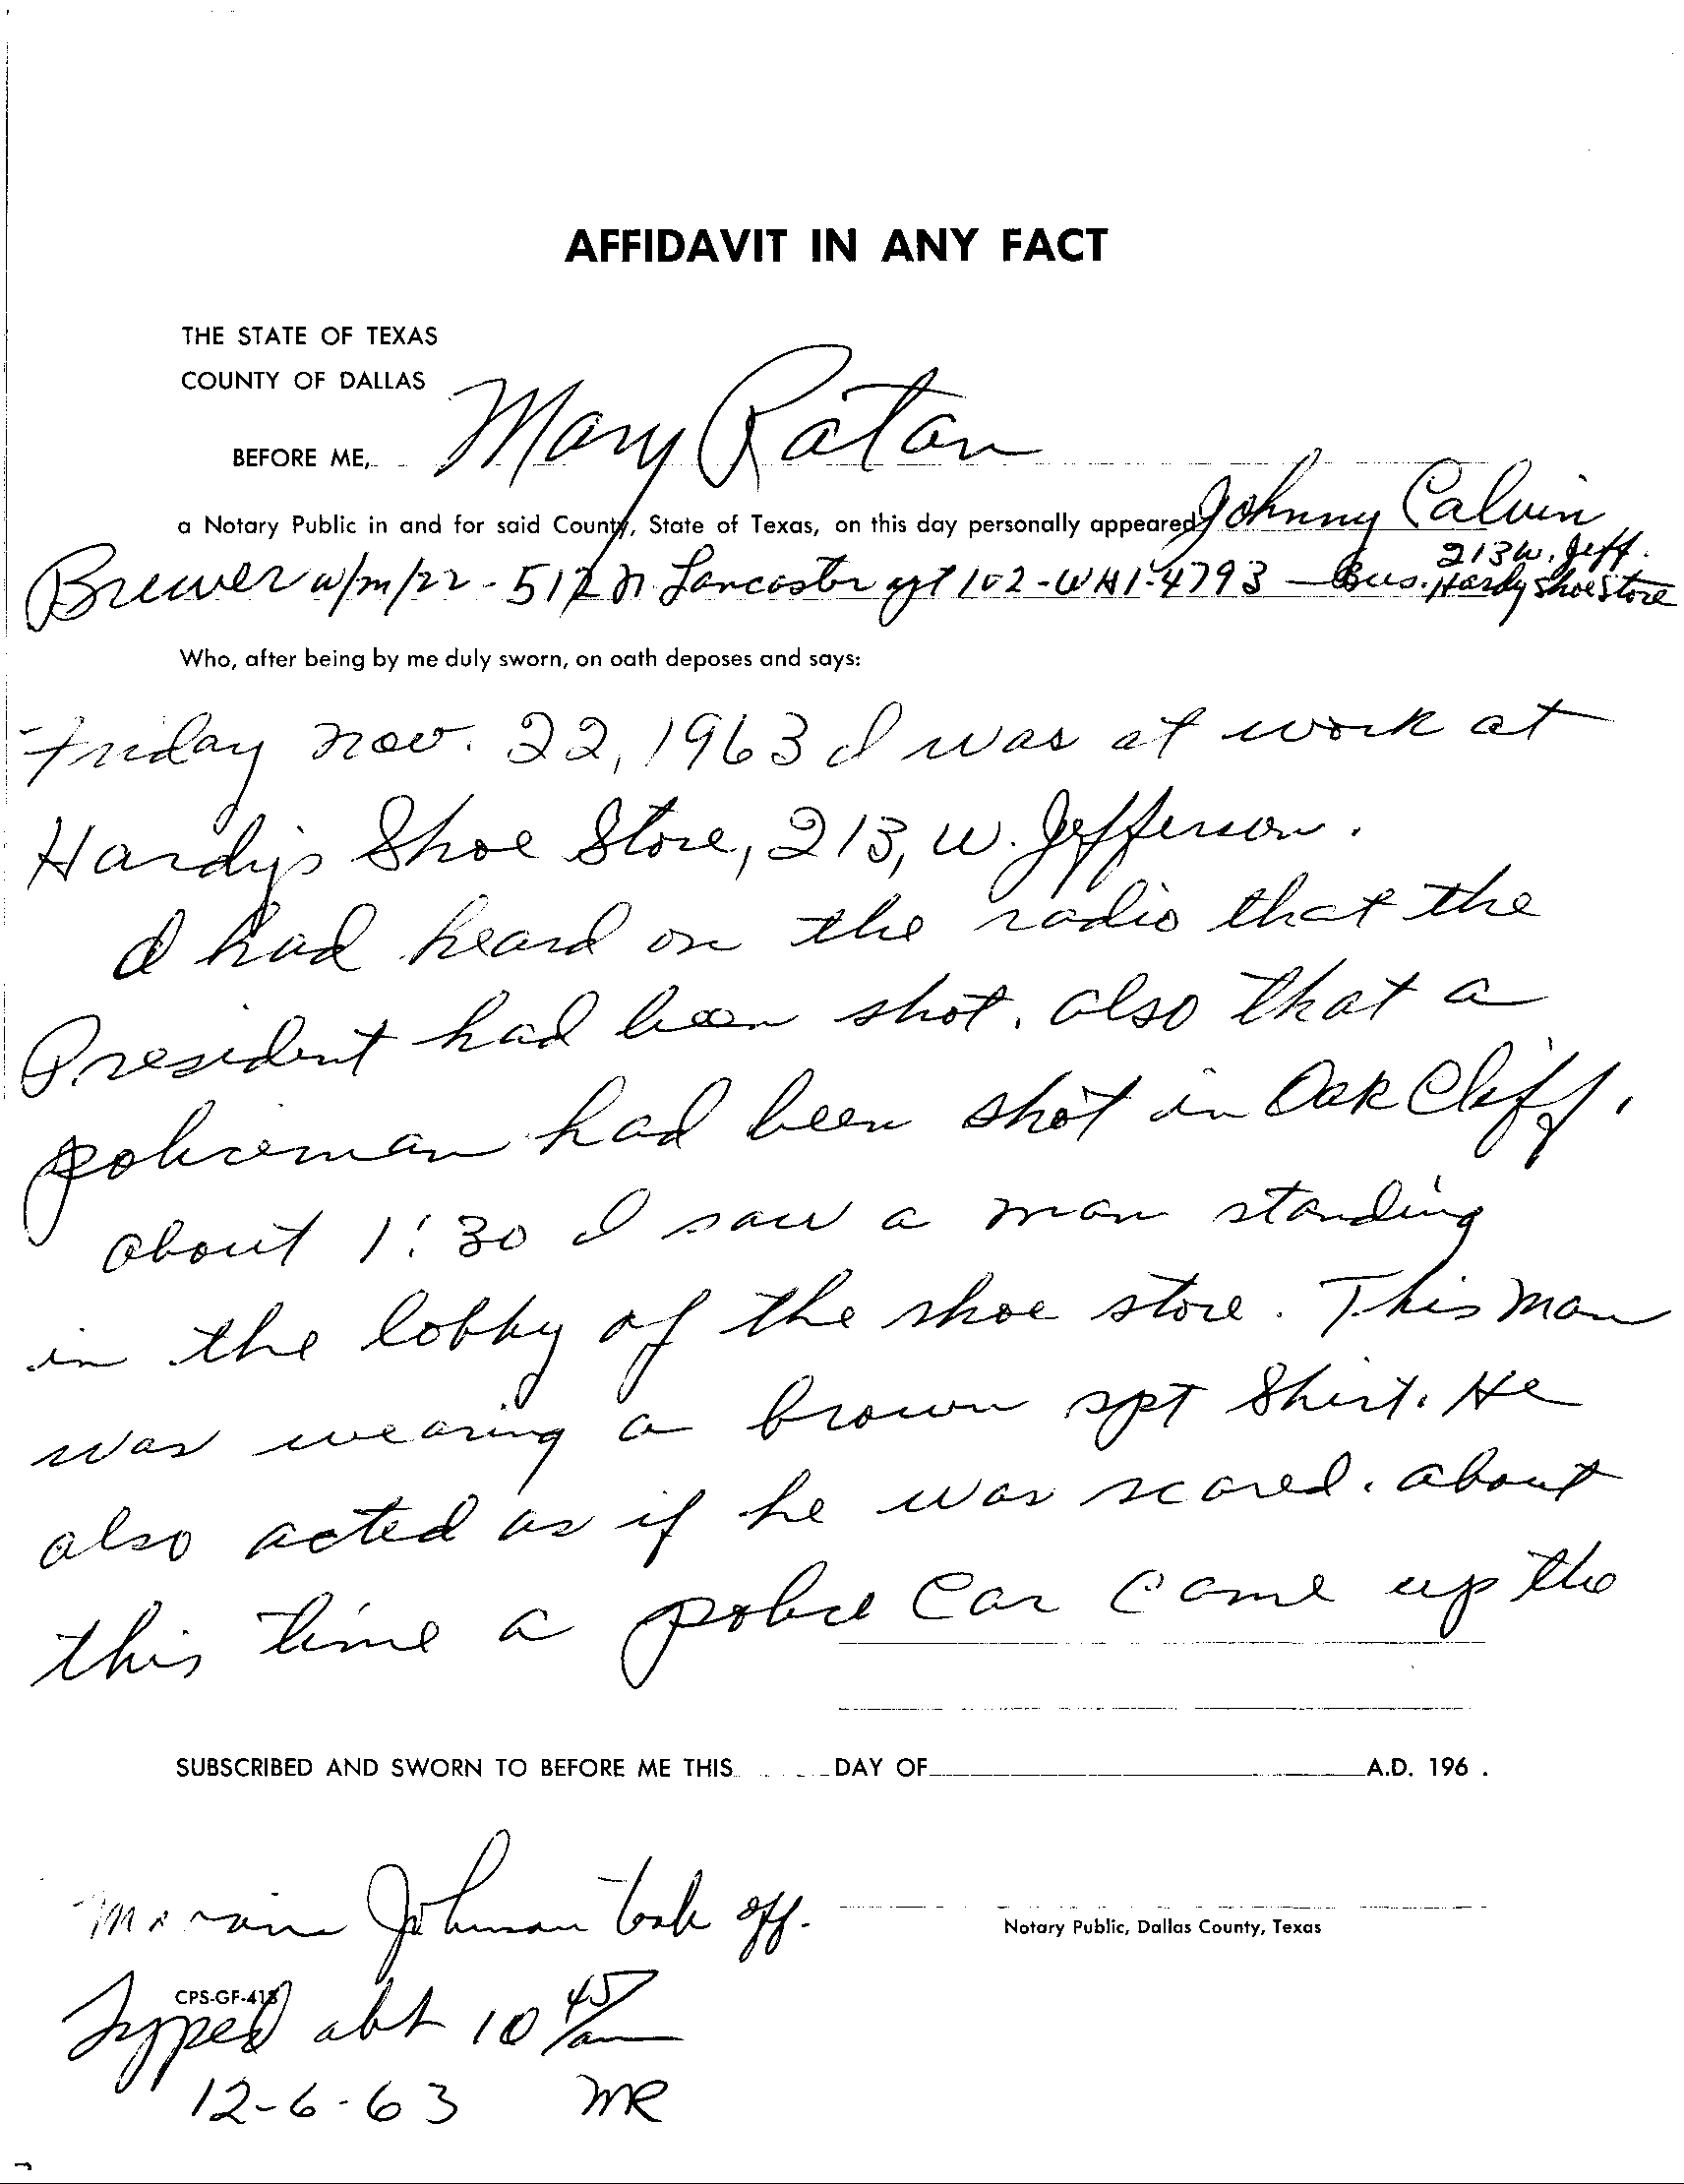 AFFIDAVIT IN ANY FACT
THE STATE OF TEXAS
COUNTY OF DALLAS
BEFORE ME, Mary Ratan
a Notary Public in and for said County, State of Texas, on this day personally appeared Johnny Calvin
213 W. Jeff.
Brewer w/m/22 - 512 N Lancaster apt 102 - WH1-4793 - Bus. Hardy Shoe Store
Who, after being by me duly sworn, on oath deposes and says:
Friday Nov. 22, 1963 I was at work at
Hardy's Shoe Store, 213, W. Jefferson.
I had heard on the radio that the
President had been shot. also that a
policeman had been shot in Oak Cliff.
about 1:30 I saw a man standing
in the lobby of the shoe store. This man
was wearing a brown spt shirt. He
also acted as if he was scared. about
this time a police car came up the
SUBSCRIBED AND SWORN TO BEFORE ME THIS DAY OF A.D. 196 .
Johnson took off.
Notary Public, Dallas County, Texas
CPS-GF-413
Typed abt 10 45/am
12-6-63 MR